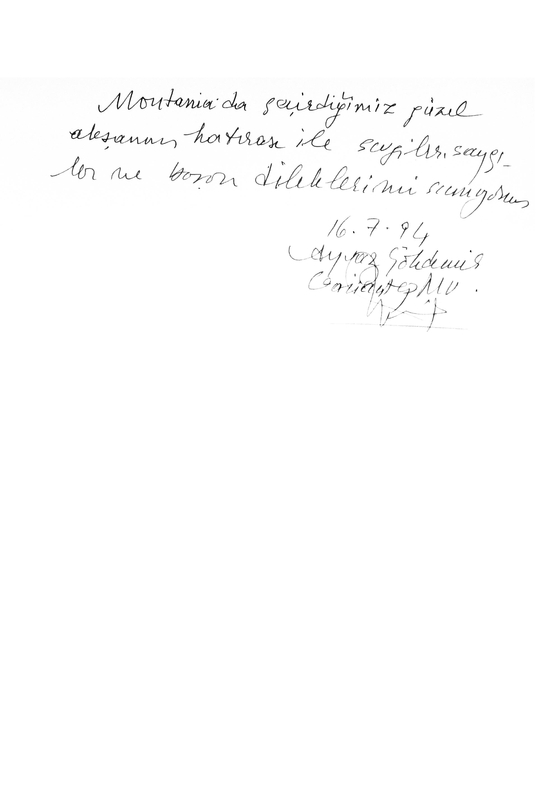 Montania'da geçirdiğimiz güzel
akşamın hatırası ile sevgiler, saygı-
lar ve başarı dileklerimi sunuyorum
16.7.94
Ayvaz Gökdemir
Gaziantep MV.